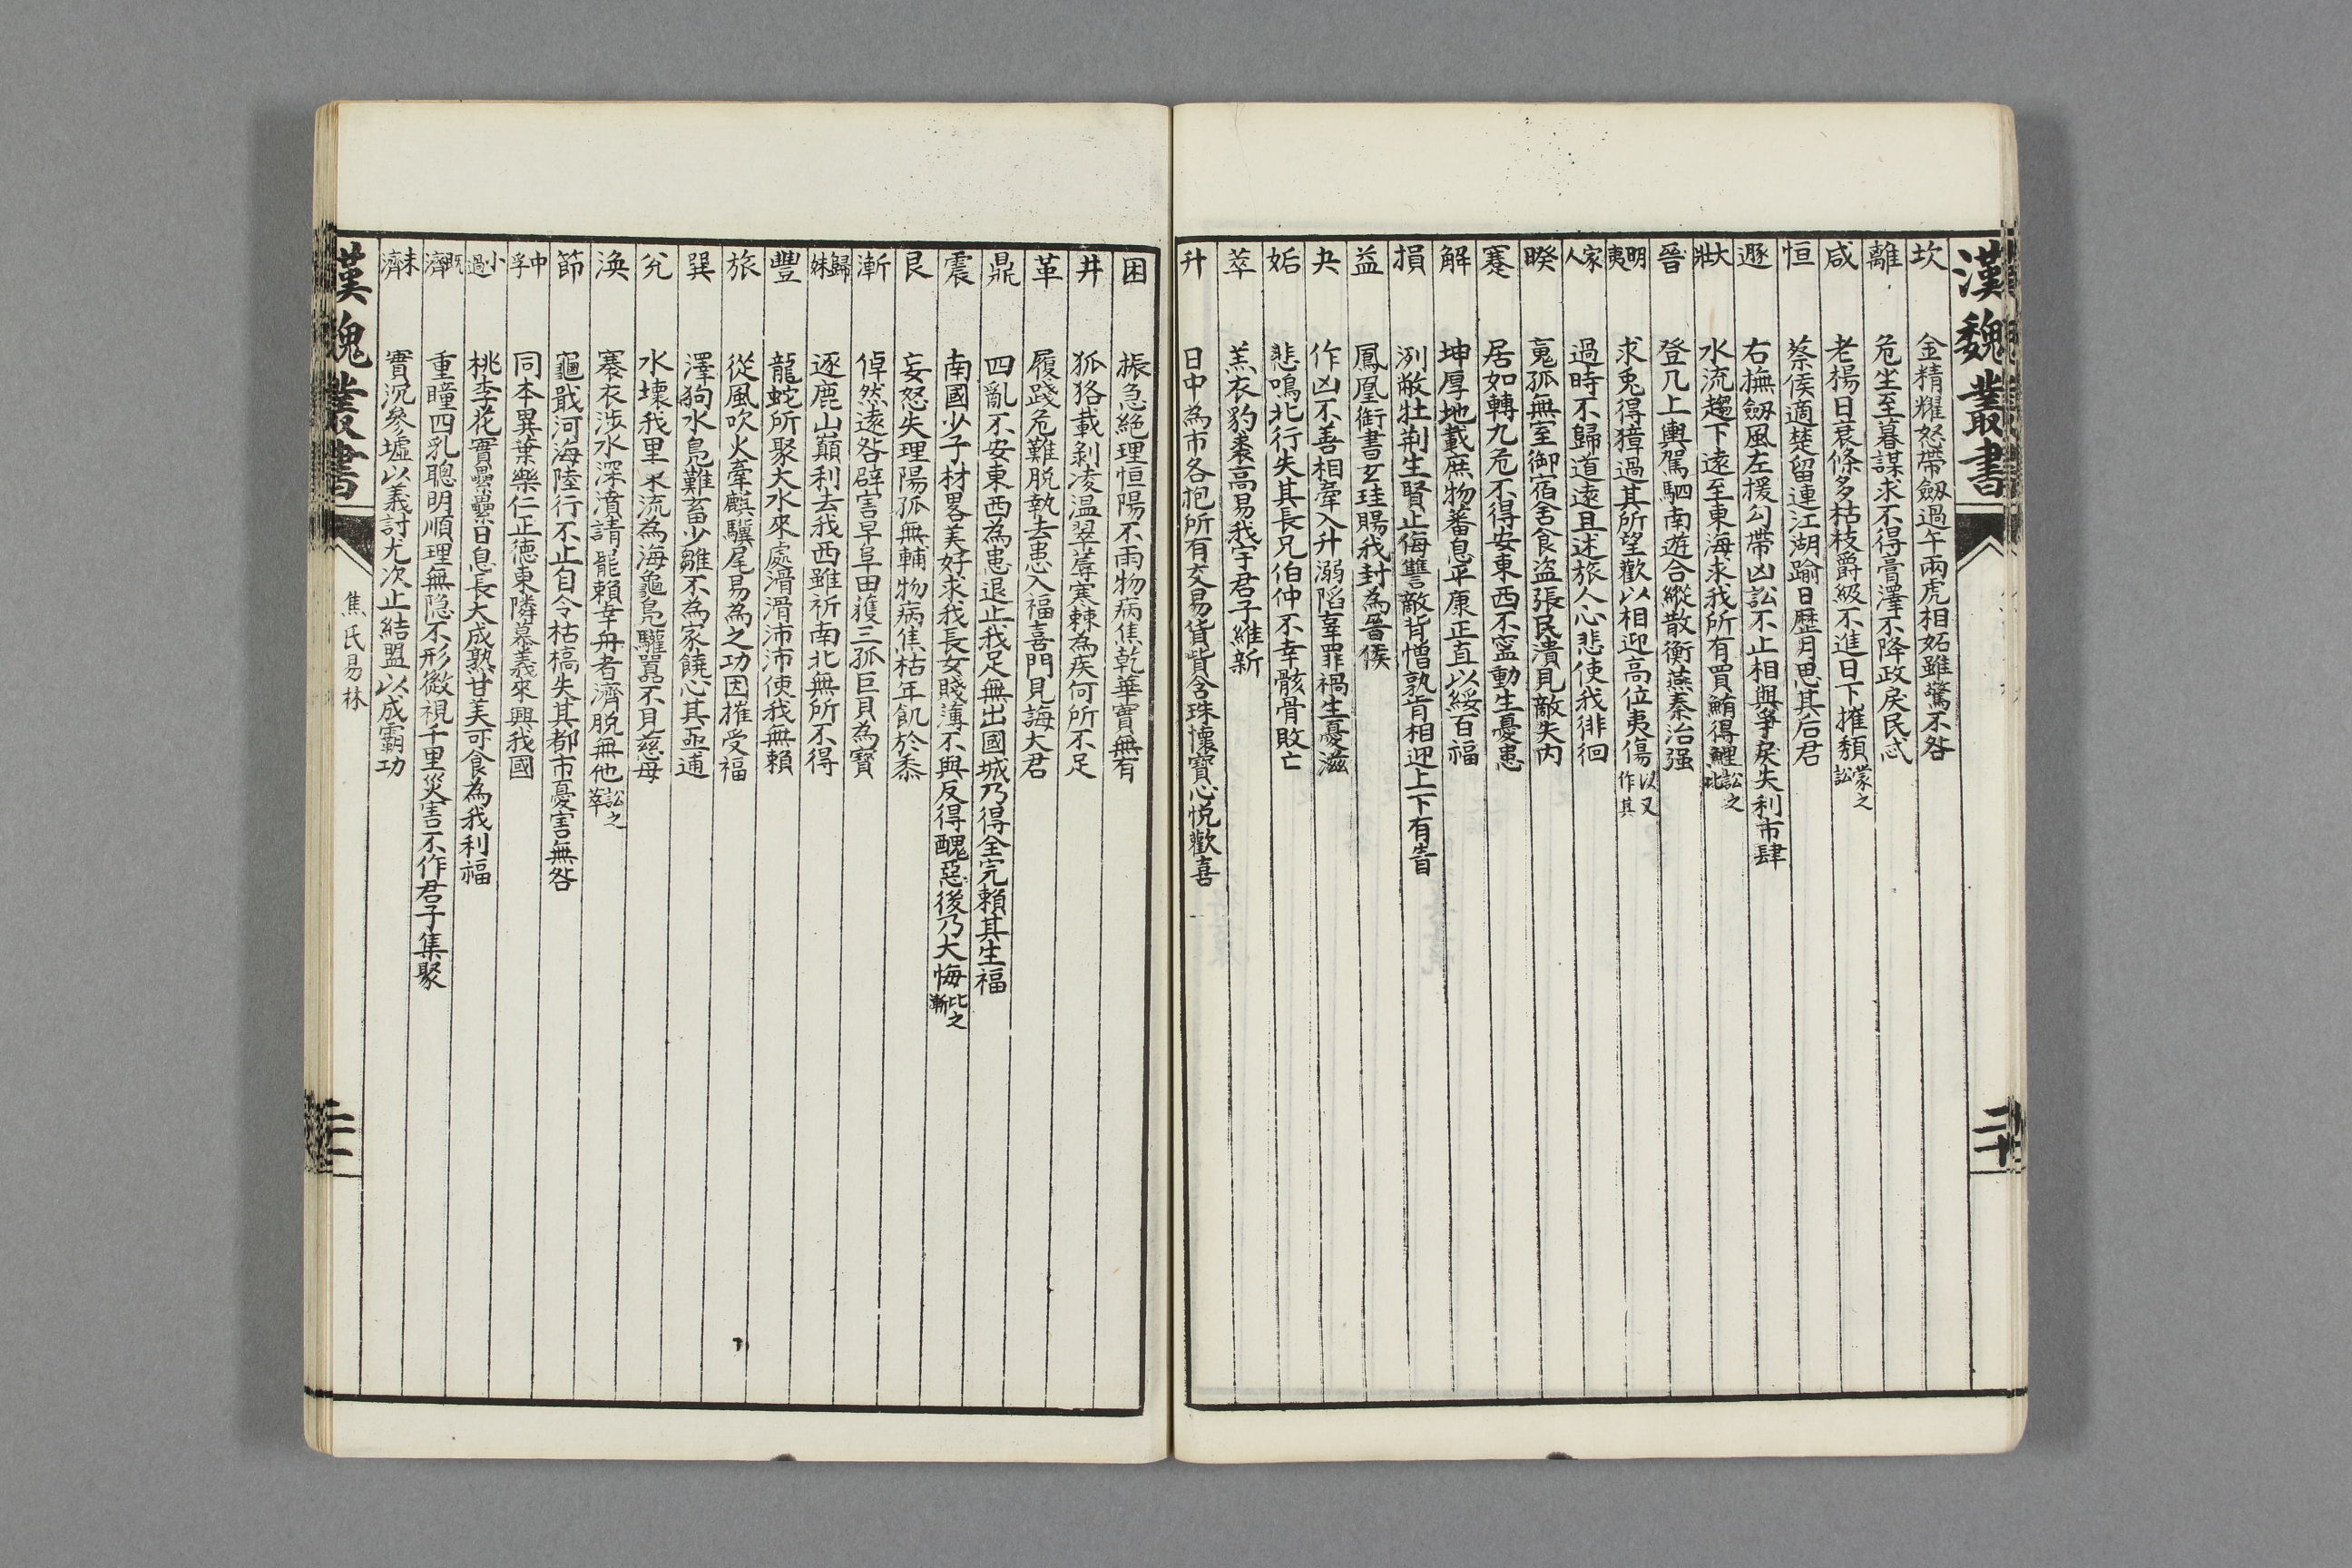 漢魏叢書
二十
坎 金精耀怒帶劔過午兩虎相妬雖驚不咎
離 危坐至暮謀求不得膏澤不降政戾民忒
咸 老楊日衰條多枯枝爵級不進日下摧頹蒙之訟
恒 蔡侯適楚留連江湖踰日歷月思其后君
遯 右撫劔風左援勾帶凶訟不止相與爭戾失利市肆
大壯 水流趨下遠至東海求我所有買鮪得鯉訟之比
晉 登几上輿駕駟南遊合縱散衡燕秦治强
明夷 求兎得獐過其所望歡以相迎高位夷傷以又作其
家人 過時不歸道遠且迷旅人心悲使我徘徊
睽 寬孤無室御宿舍食盜張民潰見敵失内
蹇 居如轉丸危不得安東西不寧動生憂患
解 坤厚地載庶物蕃息平康正直以綏百福
損 洌敝牡荆生賢止侮讐敵背憎孰肯相迎上下有眚
益 鳳凰銜書玄珪賜我封為晉侯
夬 作凶不善相牽入升溺陷辜罪禍生憂滋
姤 悲鳴北行失其長兄伯仲不幸骸骨敗亡
萃 羔衣豹裘高易我宇君子維新
升 日中為市各抱所有交易貨貲含珠懷寶心悅歡喜
困 振急絕理恒陽不雨物病焦乾華實無有
井 狐狢載剝凌溫翠蓐寒棘為疾何所不足
革 履踐危難脫執去患入福喜門見誨大君
鼎 四亂不安東西為患退止我足無出國城乃得全完賴其生福
震 南國少子材畧美好求我長女賤薄不與反得醜惡後乃大悔比之漸
艮 妄怒失理陽孤無輔物病焦枯年飢於黍
漸 倬然遠咎辟害早阜田獲三孤巨貝為寶
歸妹 逐鹿山巔利去我西雖祈南北無所不得
豐 龍蛇所聚大水來處滑滑沛沛使我無賴
旅 從風吹火牽麒驥尾易為之功因摧受福
巽 澤狗水鳧難畜少雛不為家饒心其亟逋
兌 水壞我里東流為海龜鳧驩嚚不見慈母
渙 褰衣涉水深漬請罷賴幸舟者濟脫無他訟之萃
節 龜戢河海陸行不止自令枯槁失其都市憂害無咎
中孚 同本異葉樂仁正德東隣慕義來興我國
小過 桃李花實纍纍日息長大成熟甘美可食為我利福
既濟 重瞳四乳聰明順理無隱不形微視千里災害不作君子集聚
未濟 實沉參墟以義討尤次止結盟以成霸功
漢魏叢書
焦氏易林